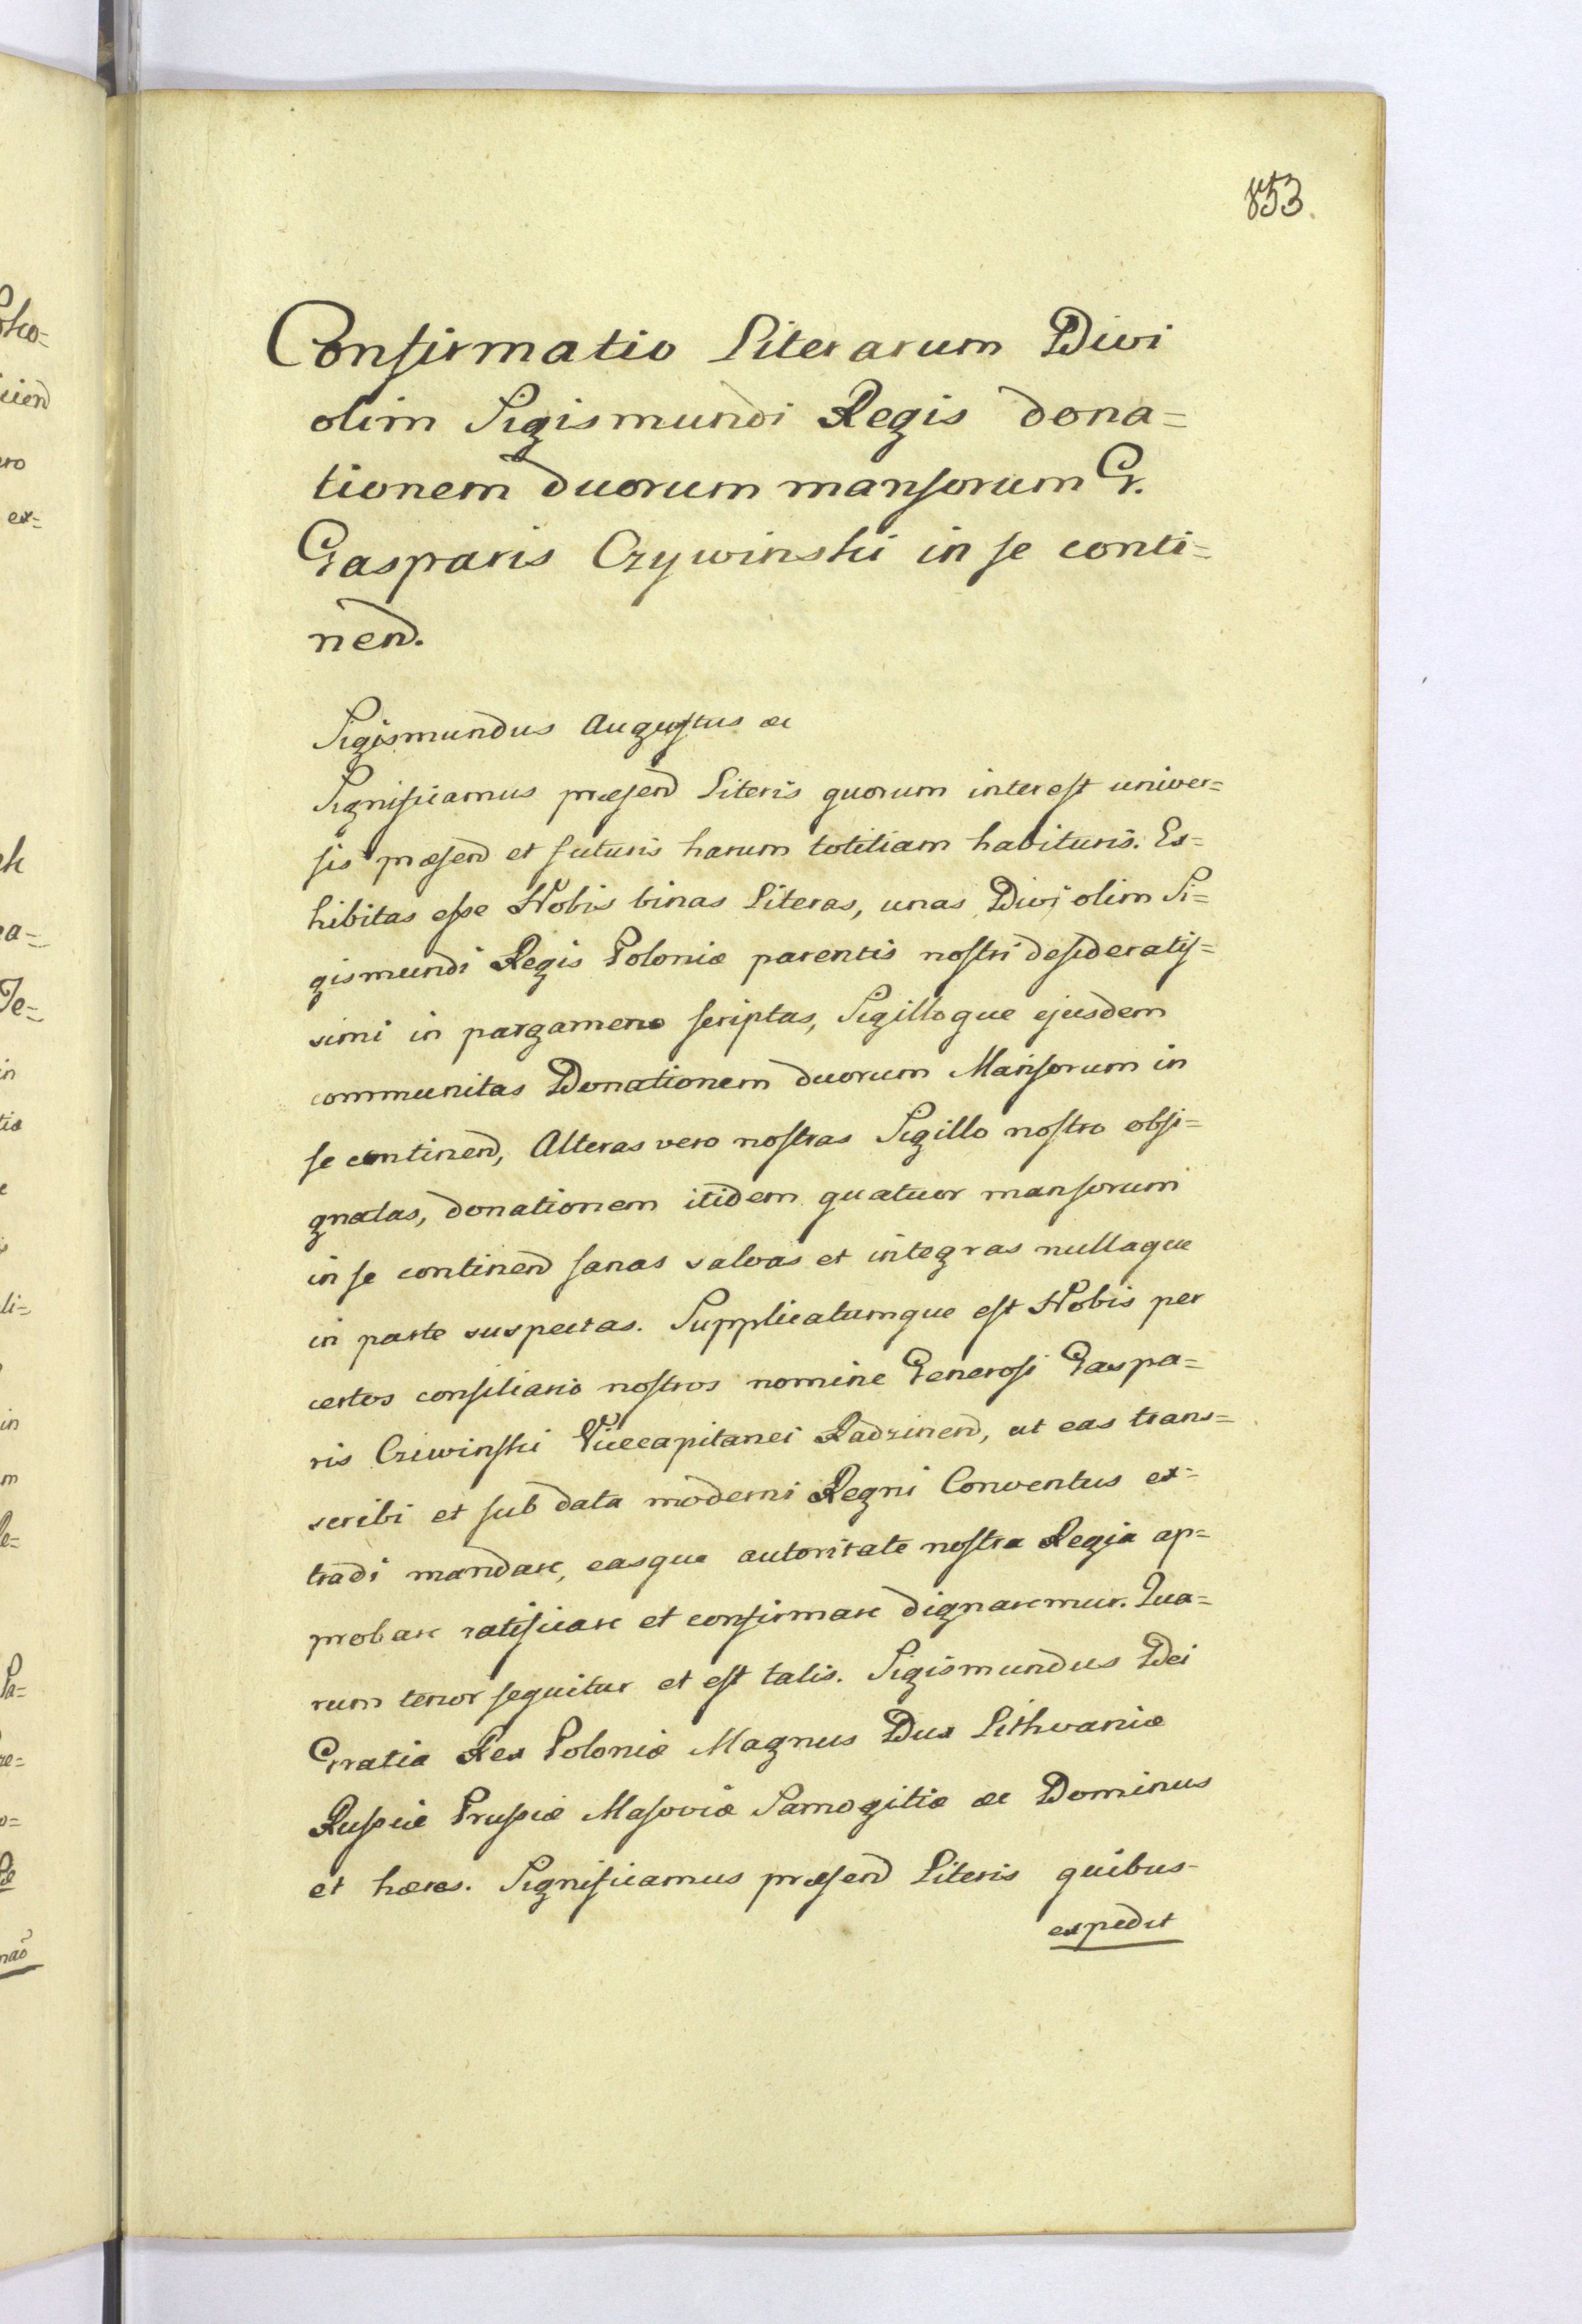 853.
Confirmatio Literarum Divi
olim Sigismundi Regis dona=
tionem duorum mansorum G.
Gasparis Czywinski in se conti=
nend.
Sigismundus Augustus &c
Significamus præsend Literis quorum interest univer=
sis præsend et futuris harum totitiam habituris. Ex=
hibitas esse Nobis binas Literas, unas Divi olim Si=
gismundi Regis Poloniæ parentis nostri desideratis=
simi in pargameno scriptas, Sigilloque ejusdem
communitas Donationem duorum Mansorum in
se continend, Alteras vero nostras Sigillo nostro obsi=
gnatas, donationem itidem quatuor mansorum
in se continend sanas salvas et integras nullaque
in parte suspectas. Supplicatumque est Nobis per
certos consiliario nostros nomine Generosi Gaspa=
ris Criwinski Vicecapitanei Radzinend, ut eas trans=
scribi et sub data moderni Regni Conventus ex=
tradi mandare, easque autoritate nostra Regia ap=
probare ratificare et confirmare dignaremur. Qua=
rum tenor sequitur et est talis. Sigismundus Dei
Gratia Rex Poloniæ Magnus Dux Lithvaniæ
Russiæ Prussiæ Masoviæ Samogitiæ &c Dominus
et hæres. Significamus præsend Literis quibus
expedit